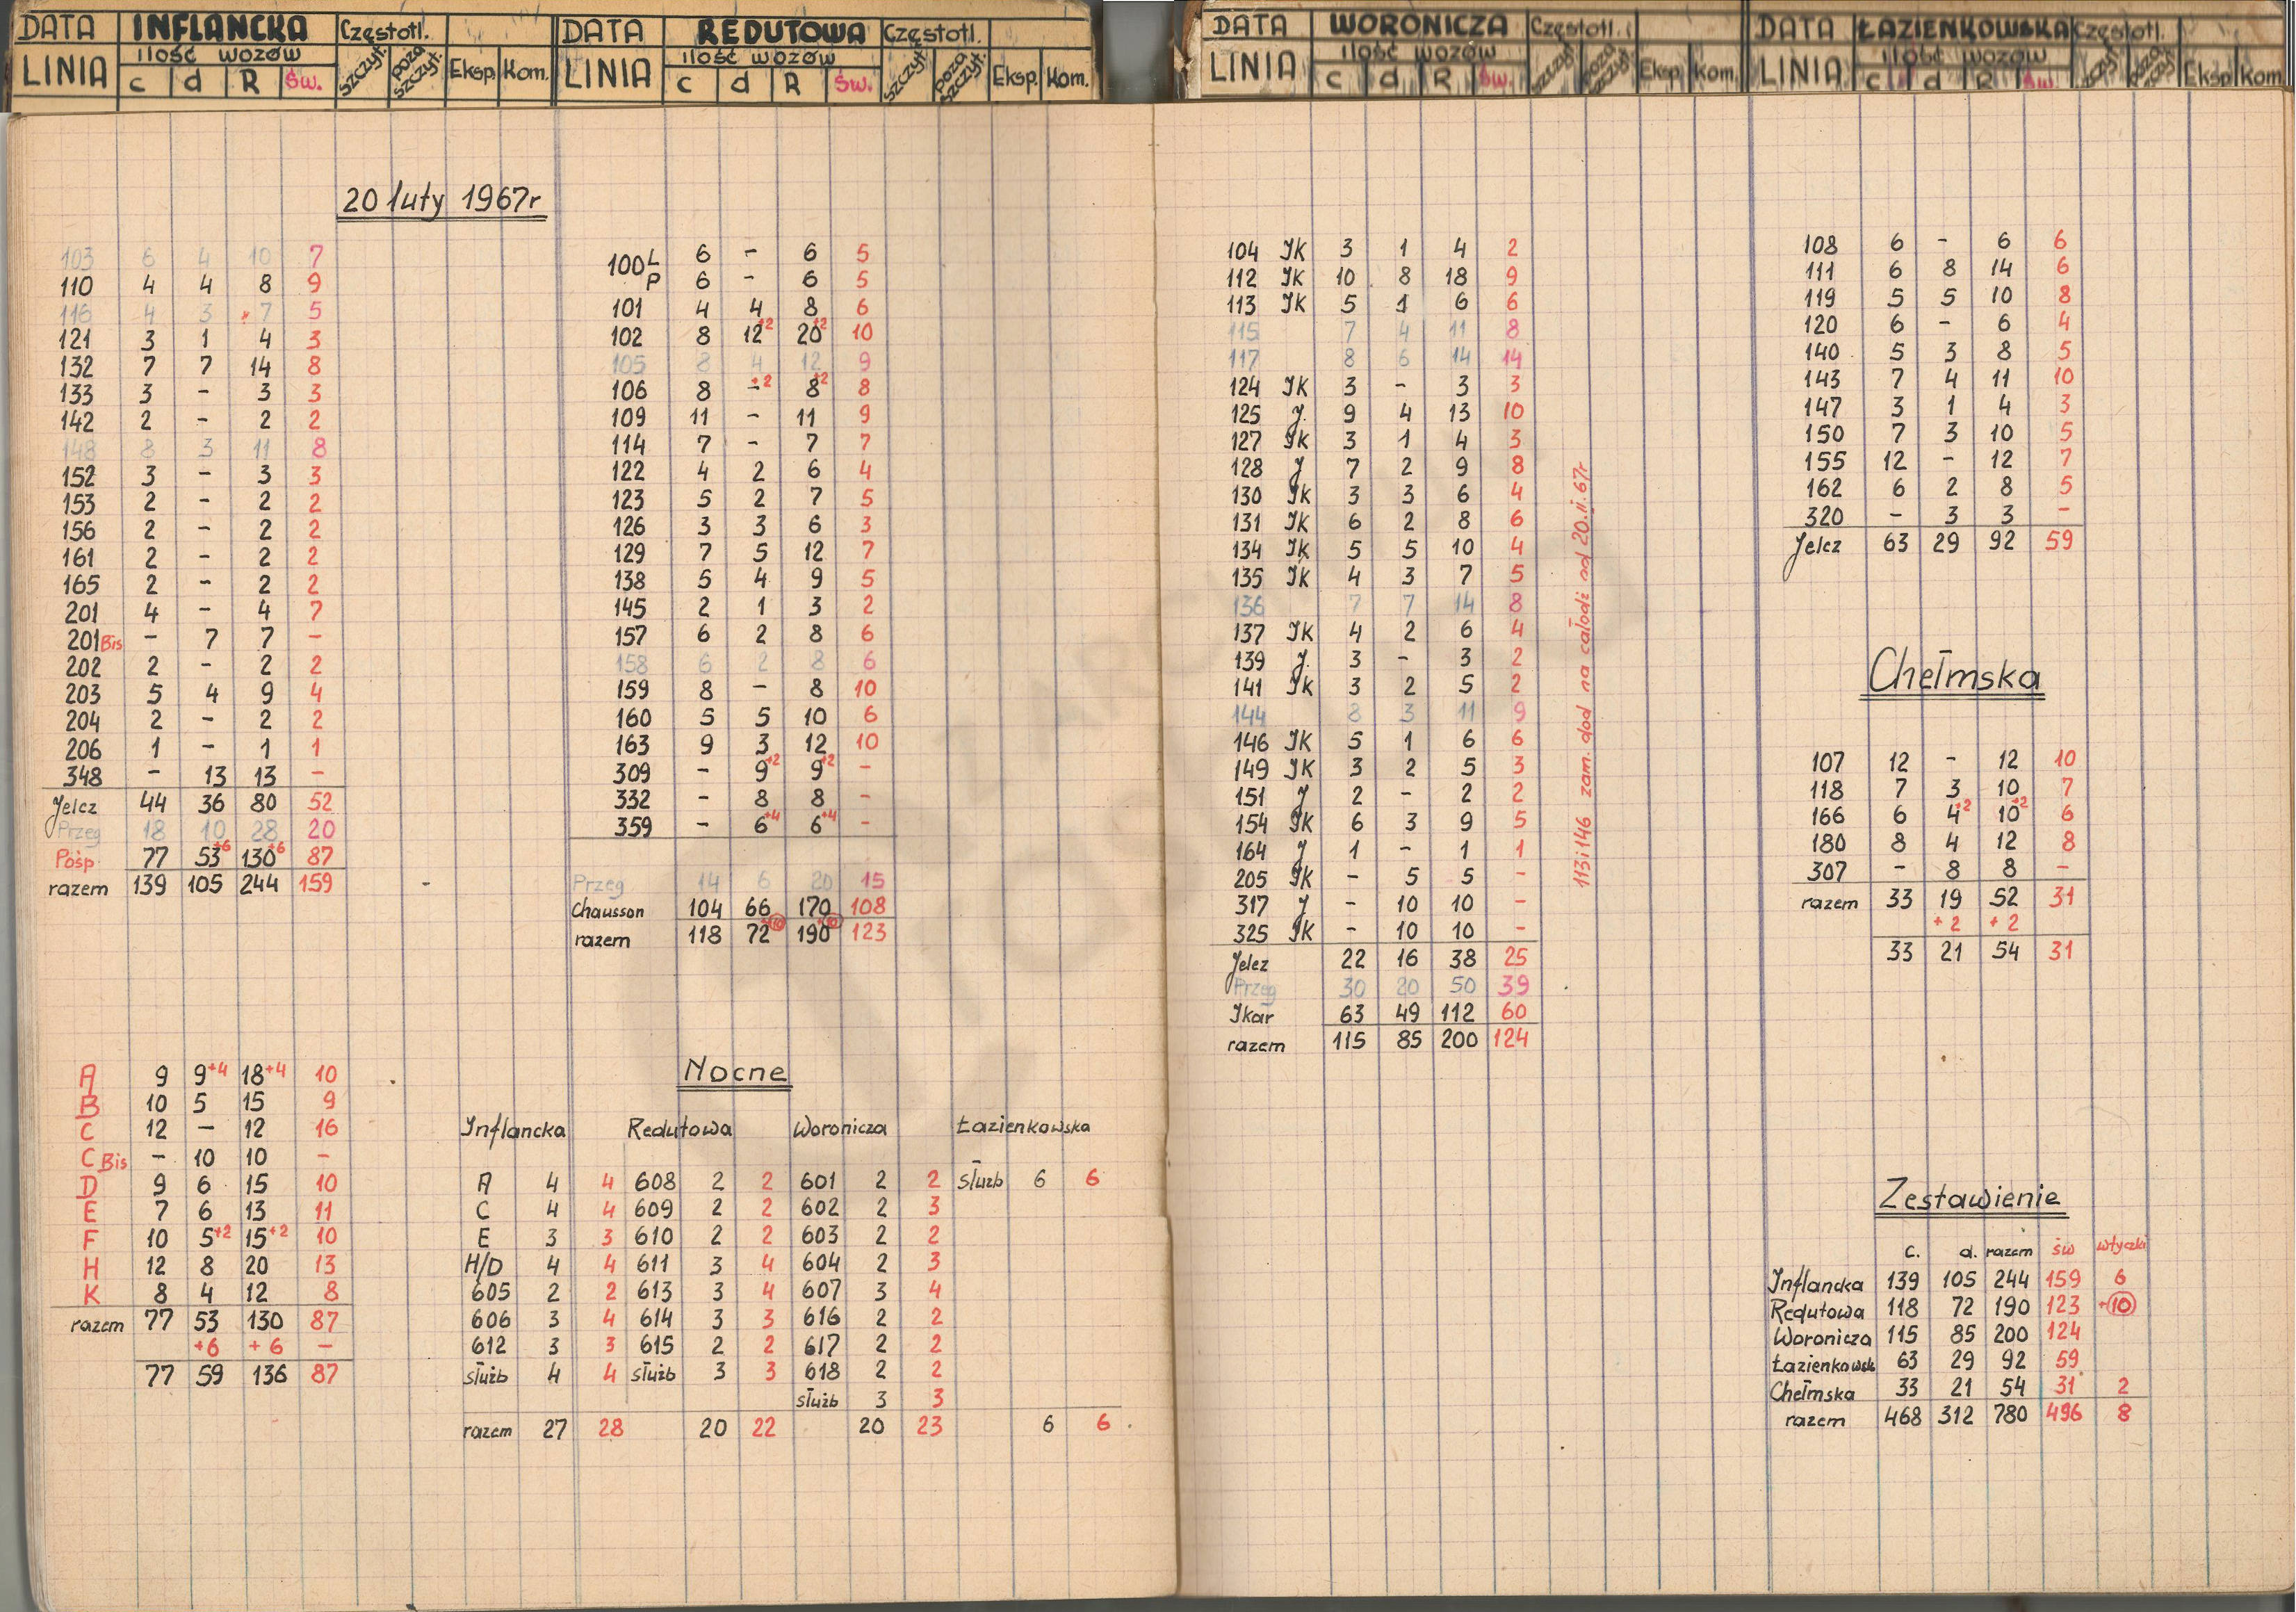 DATA INFLANCKA Częstotl.
LINIA ilość wozów szczyt. poza szczyt. Eksp. Kom.
c d R Św.
20 luty 1967r
103 6 4 10 7
110 4 4 8 9
116 4 3 7 5
121 3 1 4 3
132 7 7 14 8
133 3 - 3 3
142 2 - 2 2
148 8 3 11 8
152 3 - 3 3
153 2 - 2 2
156 2 - 2 2
161 2 - 2 2
165 2 - 2 2
201 4 - 4 7
201 Bis - 7 7 -
202 2 - 2 2
203 5 4 9 4
204 2 - 2 2
206 1 - 1 1
348 - 13 13 -
Jelcz 44 36 80 52
Przeg 18 10 28 20
Pośp 77 53+6 130+6 87
razem 139 105 244 159
A 9 9+4 18+4 10
B 10 5 15 9
C 12 - 12 16
C Bis - 10 10 -
D 9 6 15 10
E 7 6 13 11
F 10 5+2 15+2 10
H 12 8 20 13
K 8 4 12 8
razem 77 53 130 87
+6 +6 -
77 59 136 87
DATA REDUTOWA Częstotl.
LINIA ilość wozów szczyt. poza szczyt. Eksp. Kom.
c d R Św.
100 L 6 - 6 5
P 6 - 6 5
101 4 4 8 6
102 8 12+2 20+2 10
105 8 4 12 9
106 8 -+2 8+2 8
109 11 - 11 9
114 7 - 7 7
122 4 2 6 4
123 5 2 7 5
126 3 3 6 3
129 7 5 12 7
138 5 4 9 5
145 2 1 3 2
157 6 2 8 6
158 6 2 8 6
159 8 - 8 10
160 5 5 10 6
163 9 3 12 10
309 - 9+2 9+2 -
332 - 8 8 -
359 - 6+4 6+4 -
Przeg 14 6 20 15
Chausson 104 66 170 108
razem 118 72+10 190+10 123
Nocne
Inflancka Redutowa Woronicza Łazienkowska
A 4 4 608 2 2 601 2 2 służb 6 6
C 4 4 609 2 2 602 2 3
E 3 3 610 2 2 603 2 2
H/D 4 4 611 3 4 604 2 3
605 2 2 613 3 4 607 3 4
606 3 4 614 3 3 616 2 2
612 3 3 615 2 2 617 2 2
służb 4 4 służb 3 3 618 2 2
służb 3 3
razem 27 28 20 22 20 23 6 6
DATA WORONICZA Częstotl.
LINIA ilość wozów szczyt. poza szczyt. Eksp. Kom.
c d R Św.
104 IK 3 1 4 2
112 IK 10 8 18 9
113 IK 5 1 6 6
115 7 4 11 8
117 8 6 14 14
124 IK 3 - 3 3
125 J. 9 4 13 10
127 IK 3 1 4 3
128 J 7 2 9 8
130 IK 3 3 6 4
131 IK 6 2 8 6
134 IK 5 5 10 4
135 IK 4 3 7 5
136 7 7 14 8
137 IK 4 2 6 4
139 J. 3 - 3 2
141 IK 3 2 5 2
144 8 3 11 9
146 IK 5 1 6 6
149 IK 3 2 5 3
151 J 2 - 2 2
154 IK 6 3 9 5
164 J 1 - 1 1
205 IK - 5 5 -
317 J - 10 10 -
325 IK - 10 10 -
Jelcz 22 16 38 25
Przeg 30 20 50 39
Ikar 63 49 112 60
razem 115 85 200 124
113 i 146 zam. dod na całodz od 20.II.67r
DATA ŁAZIENKOWSKA Częstotl.
LINIA ilość wozów szczyt. poza szczyt. Eksp. Kom.
c d R Św.
108 6 - 6 6
111 6 8 14 6
119 5 5 10 8
120 6 - 6 4
140 5 3 8 5
143 7 4 11 10
147 3 1 4 3
150 7 3 10 5
155 12 - 12 7
162 6 2 8 5
320 - 3 3 -
Jelcz 63 29 92 59
Chełmska
107 12 - 12 10
118 7 3 10 7
166 6 4+2 10+2 6
180 8 4 12 8
307 - 8 8 -
razem 33 19 52 31
+2 +2
33 21 54 31
Zestawienie
c. d. razem św wtyczki
Inflancka 139 105 244 159 6
Redutowa 118 72 190 123 +10
Woronicza 115 85 200 124
Łazienkowsk 63 29 92 59
Chełmska 33 21 54 31 2
razem 468 312 780 496 8